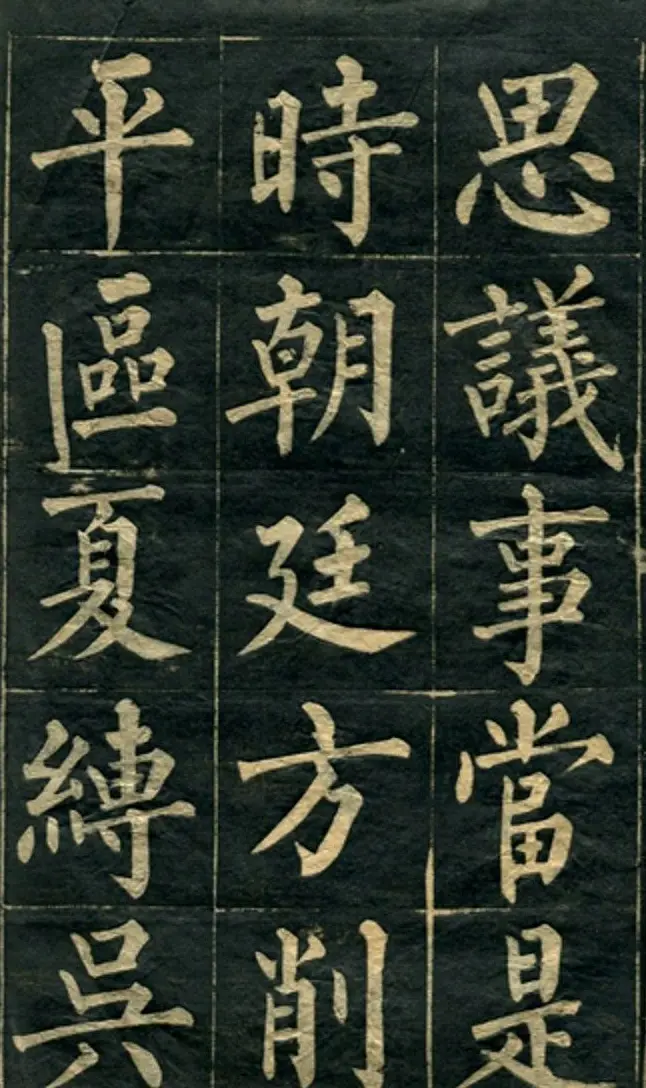 思議事當是
時朝廷方削
平區夏縛吳